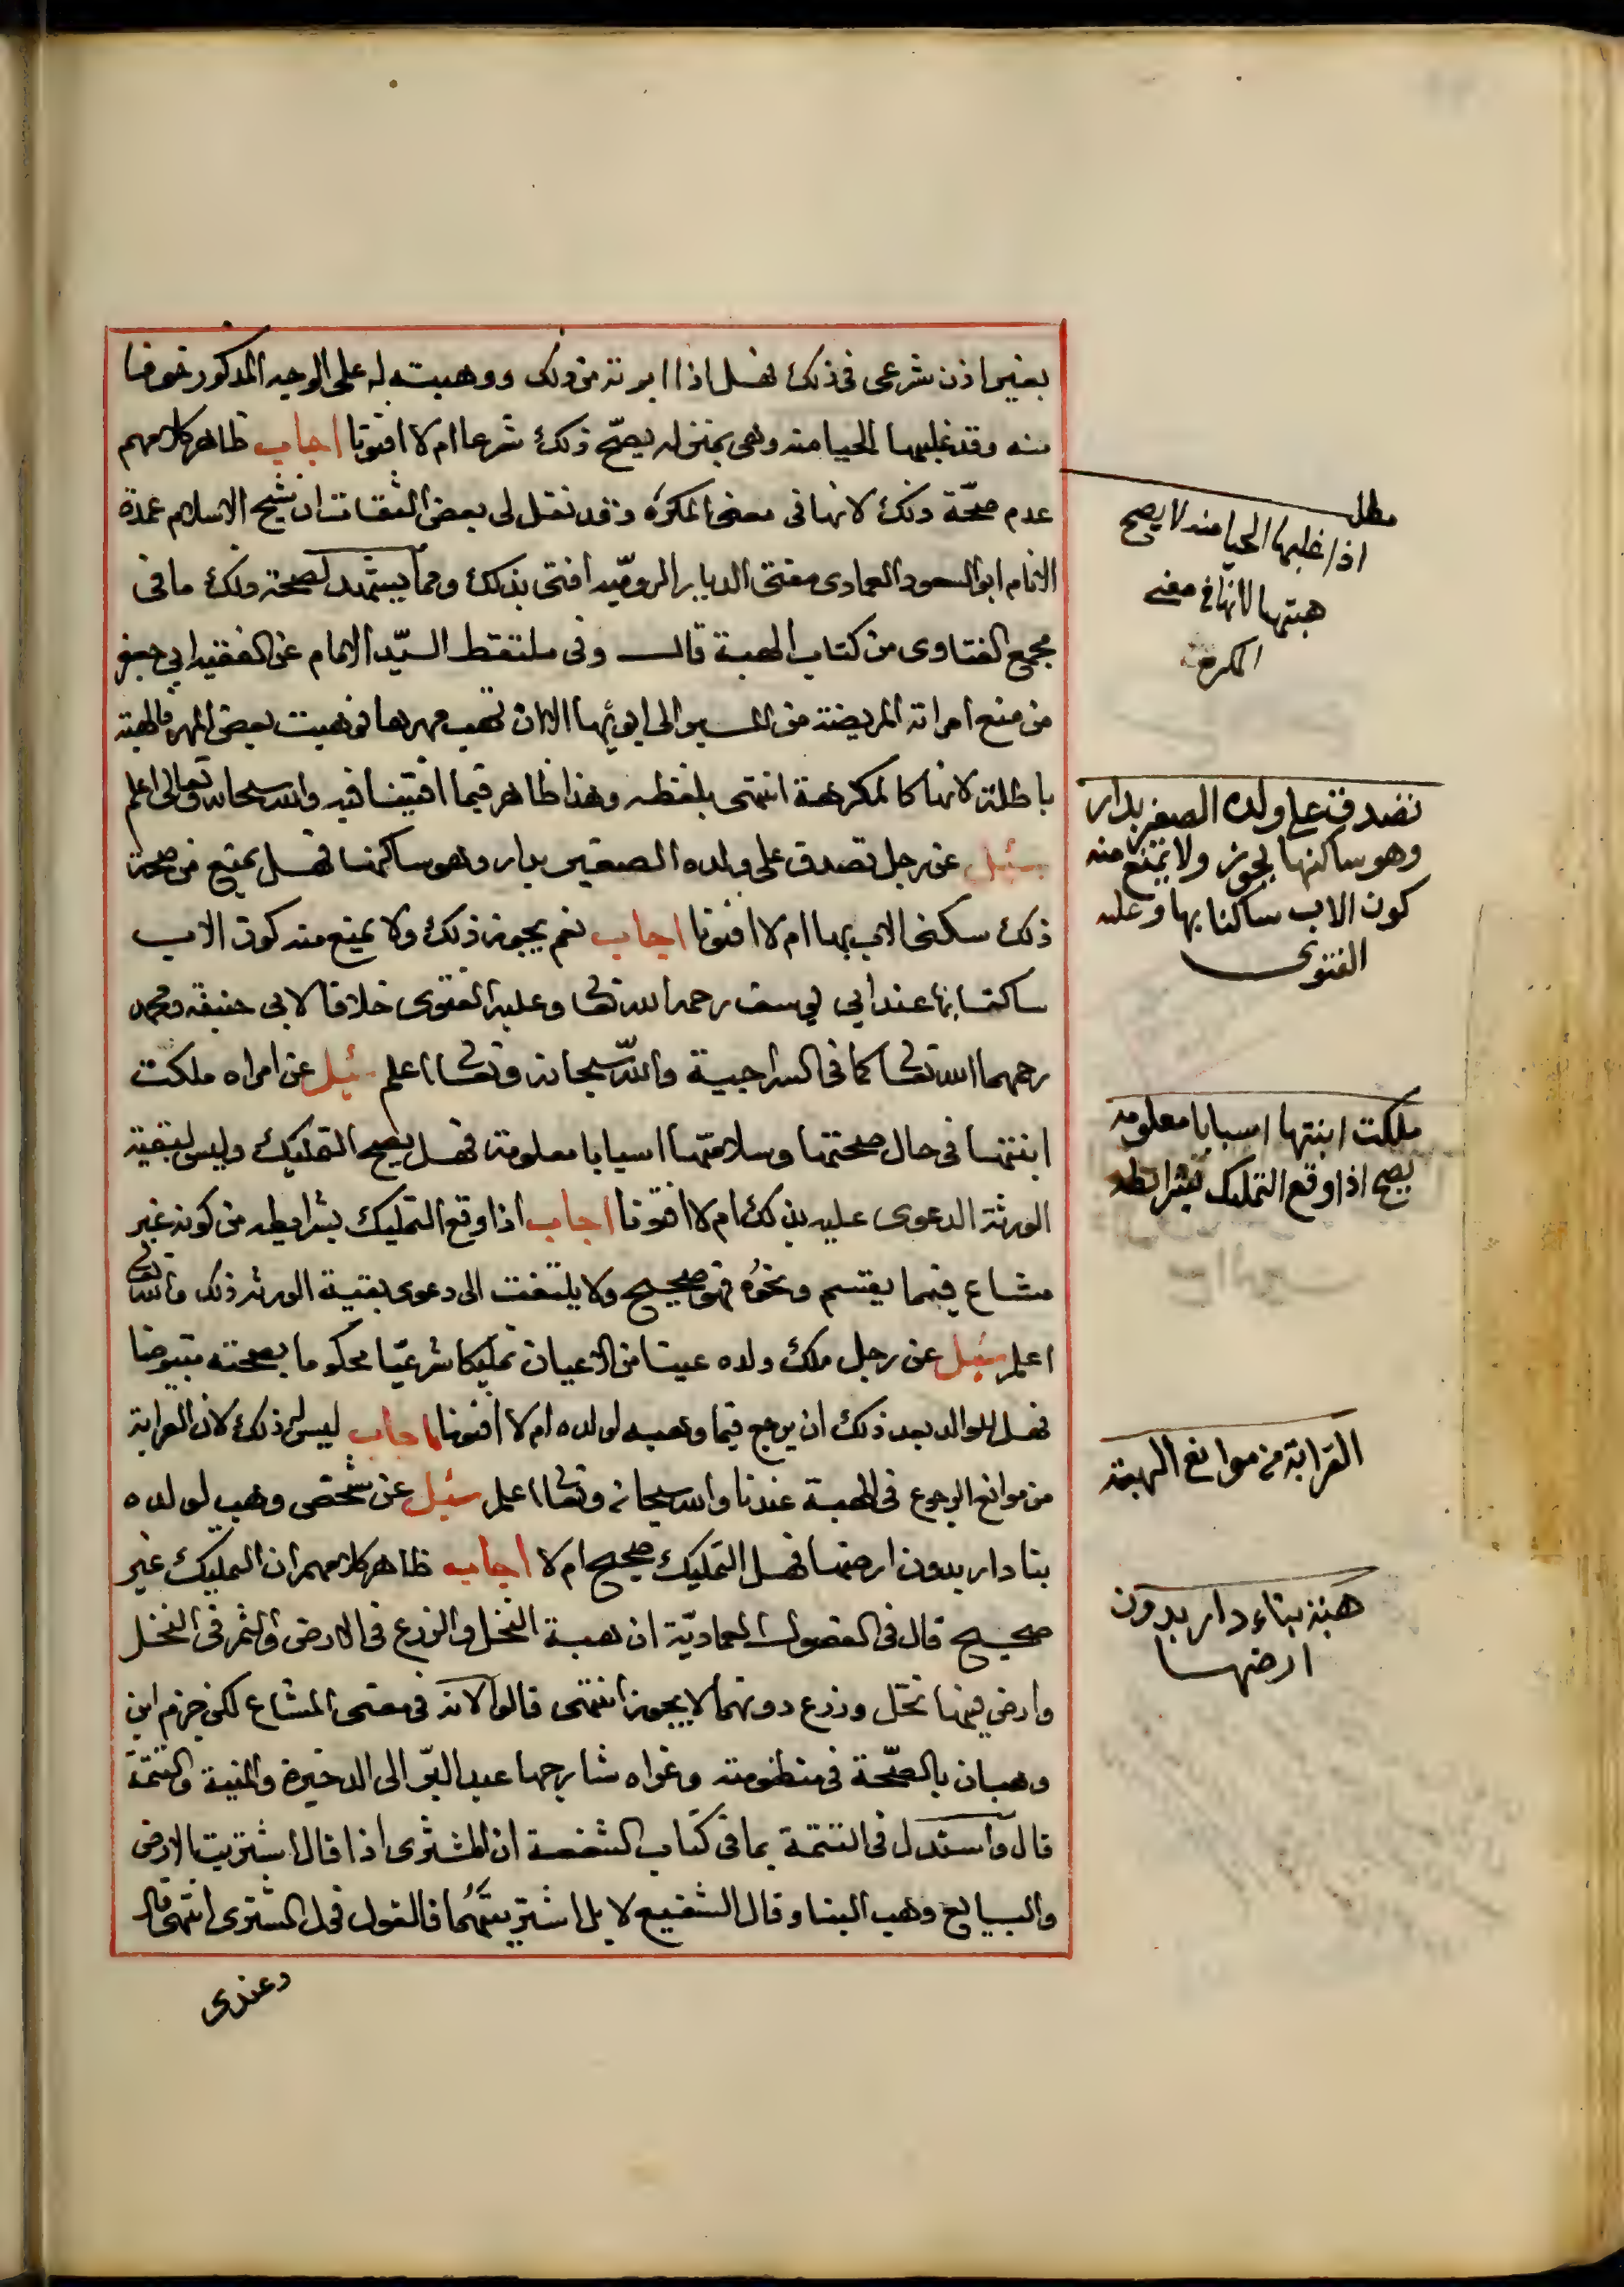 بغير اذن شرعى فى ذلك فهل اذا ابرته من ذلك ووهبته له على الوجه المذكور خوفا
منه وقد غلبها الحيا منه وهى بمنزله يصحّ ذلك شرعا ام لا افتونا اجاب ظاهر كلامهم
عدم صحّة ذلك لانها فى معنى المكرَه وقد نقل لى بعض الثقات ان شيخ الاسلام عمدة
الانام ابو السعود العمادى مفتى الديار الروميّه افتى بذلك ومما يستشهد لصحة ذلك ما فى
مجمع الفتاوى من كتاب الهبة قال وفى ملتقط السيّد الامام عن الفقيه ابى جعفر
من منع امراته المريضة من المسير الى ابويها الا ان تهب مهرها فوهبت بعض المهر فالهبة
باطلة لانها كالمكرهة انتهى بلفظه وهذا ظاهر فيما افتينا فيه والله سبحانه وتعالى اعلم
سئل عن رجل تصدق على ولده الصغير بدار وهو ساكنها فهل يمنع من صحة
ذلك سكنى الاب بها ام لا افتونا اجاب نعم يجوز ذلك ولا يمنع منه كون الاب
ساكنا بها عند ابى يوسف رحمه الله تعا وعليه الفتوى خلافا لابى حنيفة ومحمد
رحمهما الله تعا كما فى السراجية والله سبحانه وتعا اعلم سئل عن امراه ملكت
ابنتها فى حال صحتها وسلامتها اسبابا معلومة فهل يصح التمليك وليس لبقية
الورثة الدعوى عليه بذلك ام لا افتونا اجاب اذا وقع التمليك بشرايطه من كونه غير
مشاع فيما يقسم ونحوُه فهو صحيح ولا يلتفت الى دعوى بقية الورثه ذلك والله تعا
اعلم سئل عن رجل ملك ولده عينا من الاعيان تمليكا شرعيّا محكوما بصحته مقبوضا
فهل للوالد بعد ذلك ان يرجع فيما وهبه لولده ام لا افتونا اجاب ليس له ذلك لان القرابة
من موانع الرجوع فى الهبة عندنا والله سبحانه وتعا اعلم سئل عن شخص وهب لولده
بنا دار بدون ارضها فهل التمليك صحيح ام لا اجاب ظاهر كلامهم ان التمليك غير
صحيح قال فى الفصول العماديّة ان هبة النخل والزرع فى الارض والثمر فى النخل
وارض فيها نخل وزرع دونهما لا يجوز انتهى قالوا لانه فى معنى المشاع لكن جزم ابن
وهبان بالصّحة فى منظومته وعزاه شارحها عبد البرّ الى الدخيرة والمنية والتتمّة
قال واستدل فى التتمة بما فى كتاب الشفعة ان المشترى اذا قال اشتريت الارض
والبايع وهب البنا وقال الشفيع لا بل اشتريتهُما فالقول قول المشترى انتهى قال
وعندى
مطل
اذا غلبها الحيا منه لا يصح
هبتها لانها فى معنى
المكرهة
تصدق على ولده الصغير بدار
وهو ساكنها يجوز ولا يمنع منه
كون الاب ساكنا بها وعليه
الفتوى
ملكت ابنتها اسبابا معلومه
يصح اذا وقع التمليك بشرايطه
القرابة من موانع الهبة
هبة بناء دار بدون
ارضها